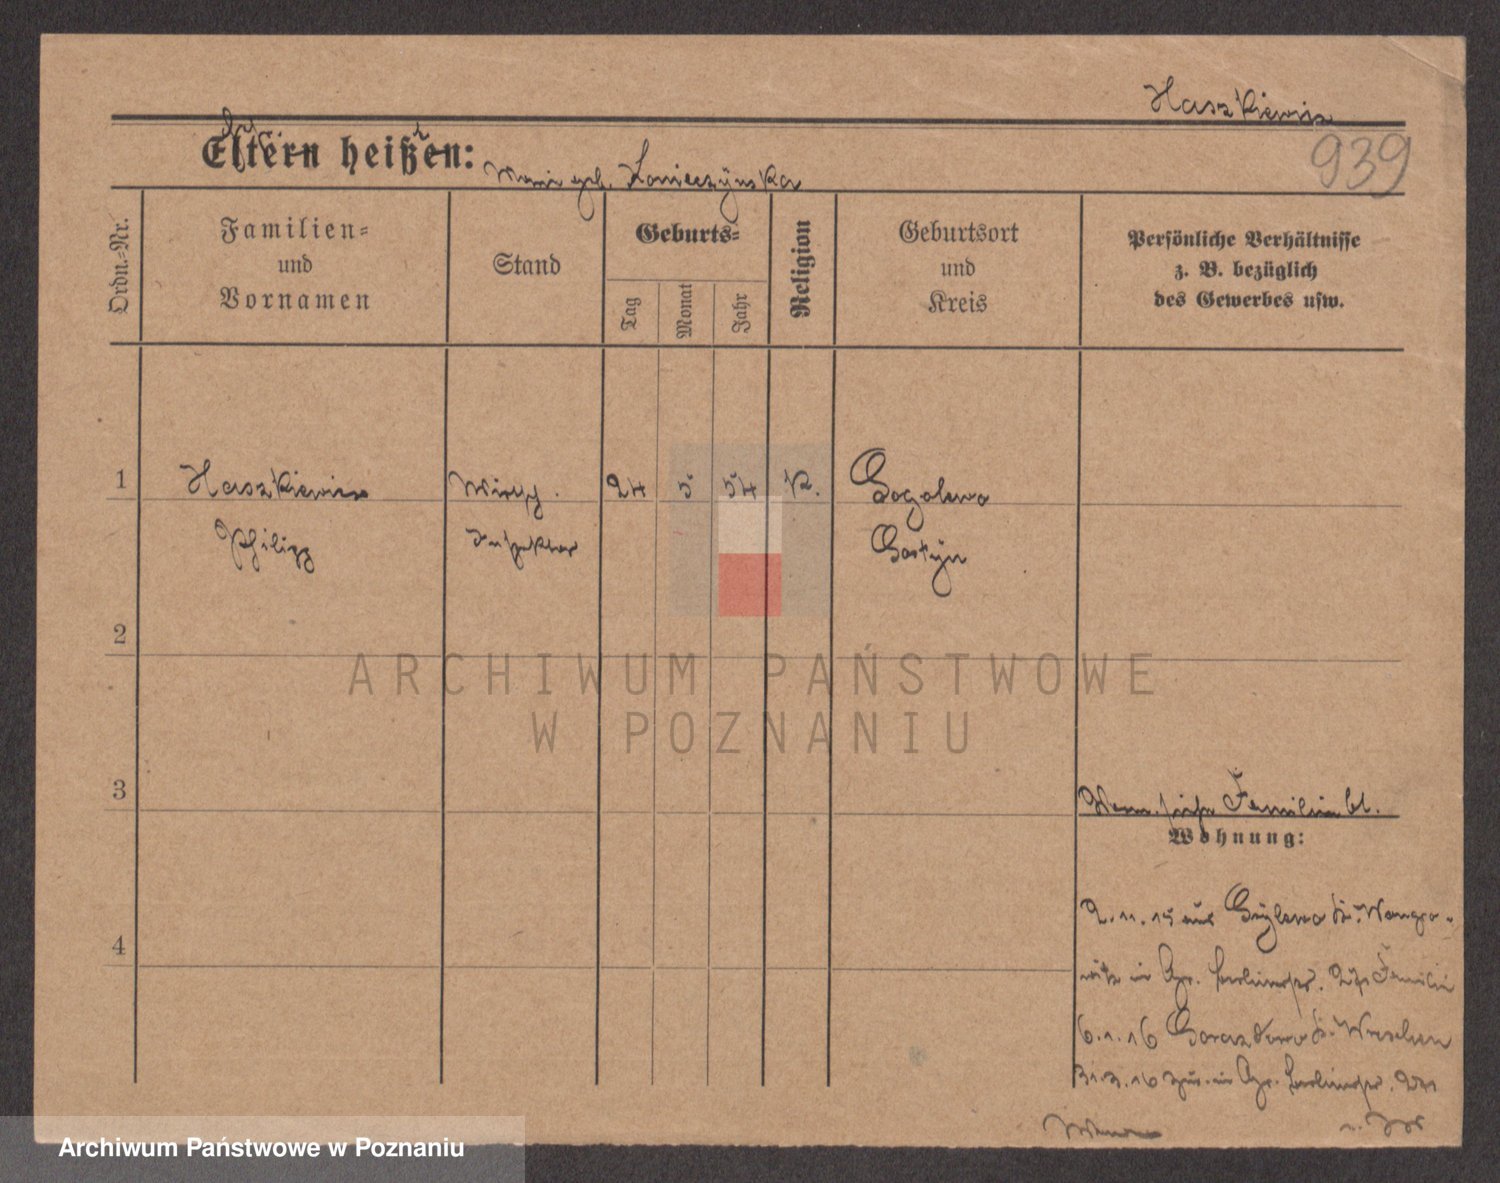 Haszkiewicz
939
Eltern heißen:
geb. Konieczyńska
Ordn.-Nr.
Familien- und Vornamen
Stand
Geburts-
Tag
Monat
Jahr
Religion
Geburtsort und Kreis
Persönliche Verhältnisse
z. B. bezüglich
des Gewerbes usw.
1
Haszkiewicz
Wirtsch.
24
5
54
K.
Gogolewo
Philipp
Inspektor
Gostyn
2
ARCHIWUM PAŃSTWOWE
W POZNANIU
3
siehe Familienbl.
Wohnung:
4
2.11.15 aus Wongro-
witz in Gr. Berlinerstr. Familie
6.1.16 Gorazdowo Kr. Wreschen
31.3.16 zur. in Gr. Berlinerstr.
Archiwum Państwowe w Poznaniu